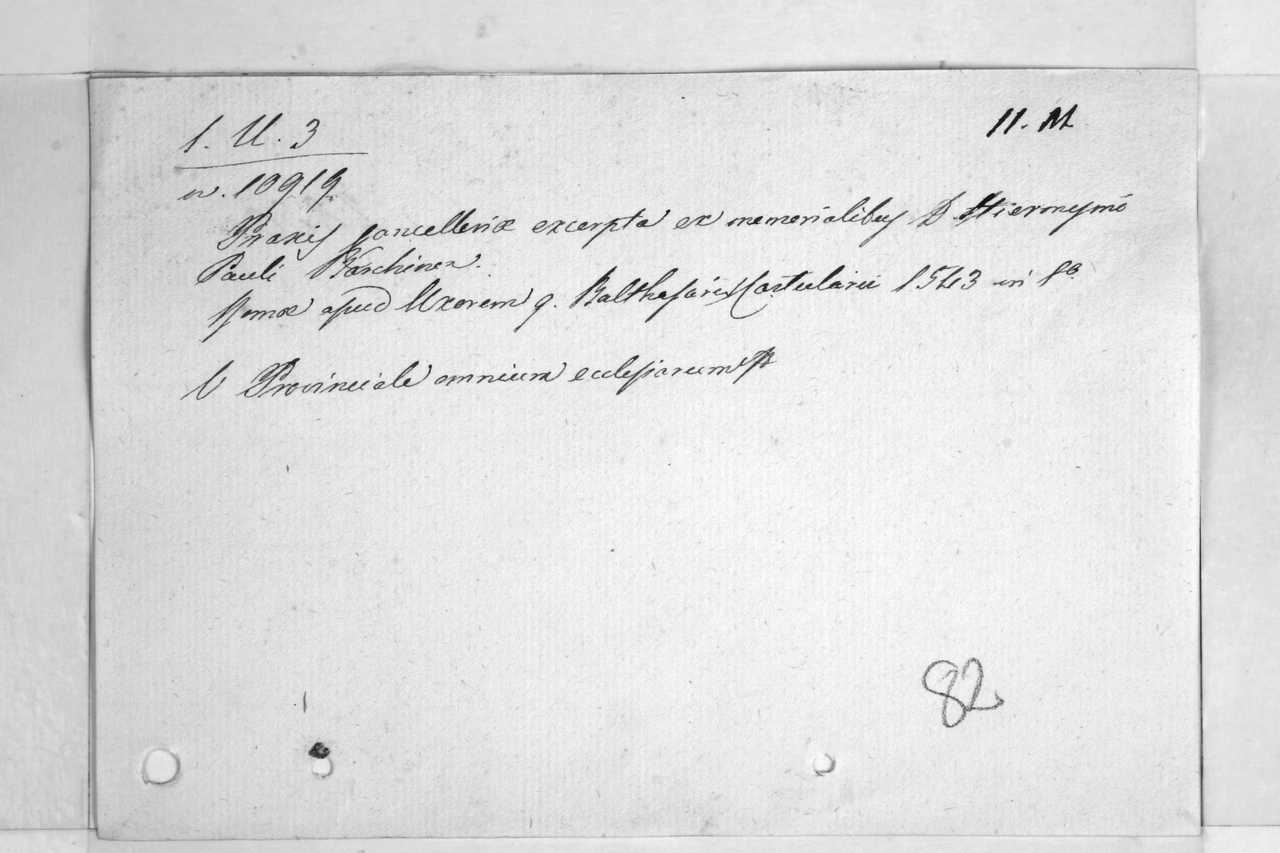 1. U. 3
11. M
n. 10919.
Praxis Cancelleriæ excerpta ex memorialibus D Hieronymi
Pauli Barchinon.
Romæ apud Uxorem q. Balthasaris Cartularii 1543 in 8º
V Provinciale omnium ecclesiarum
82